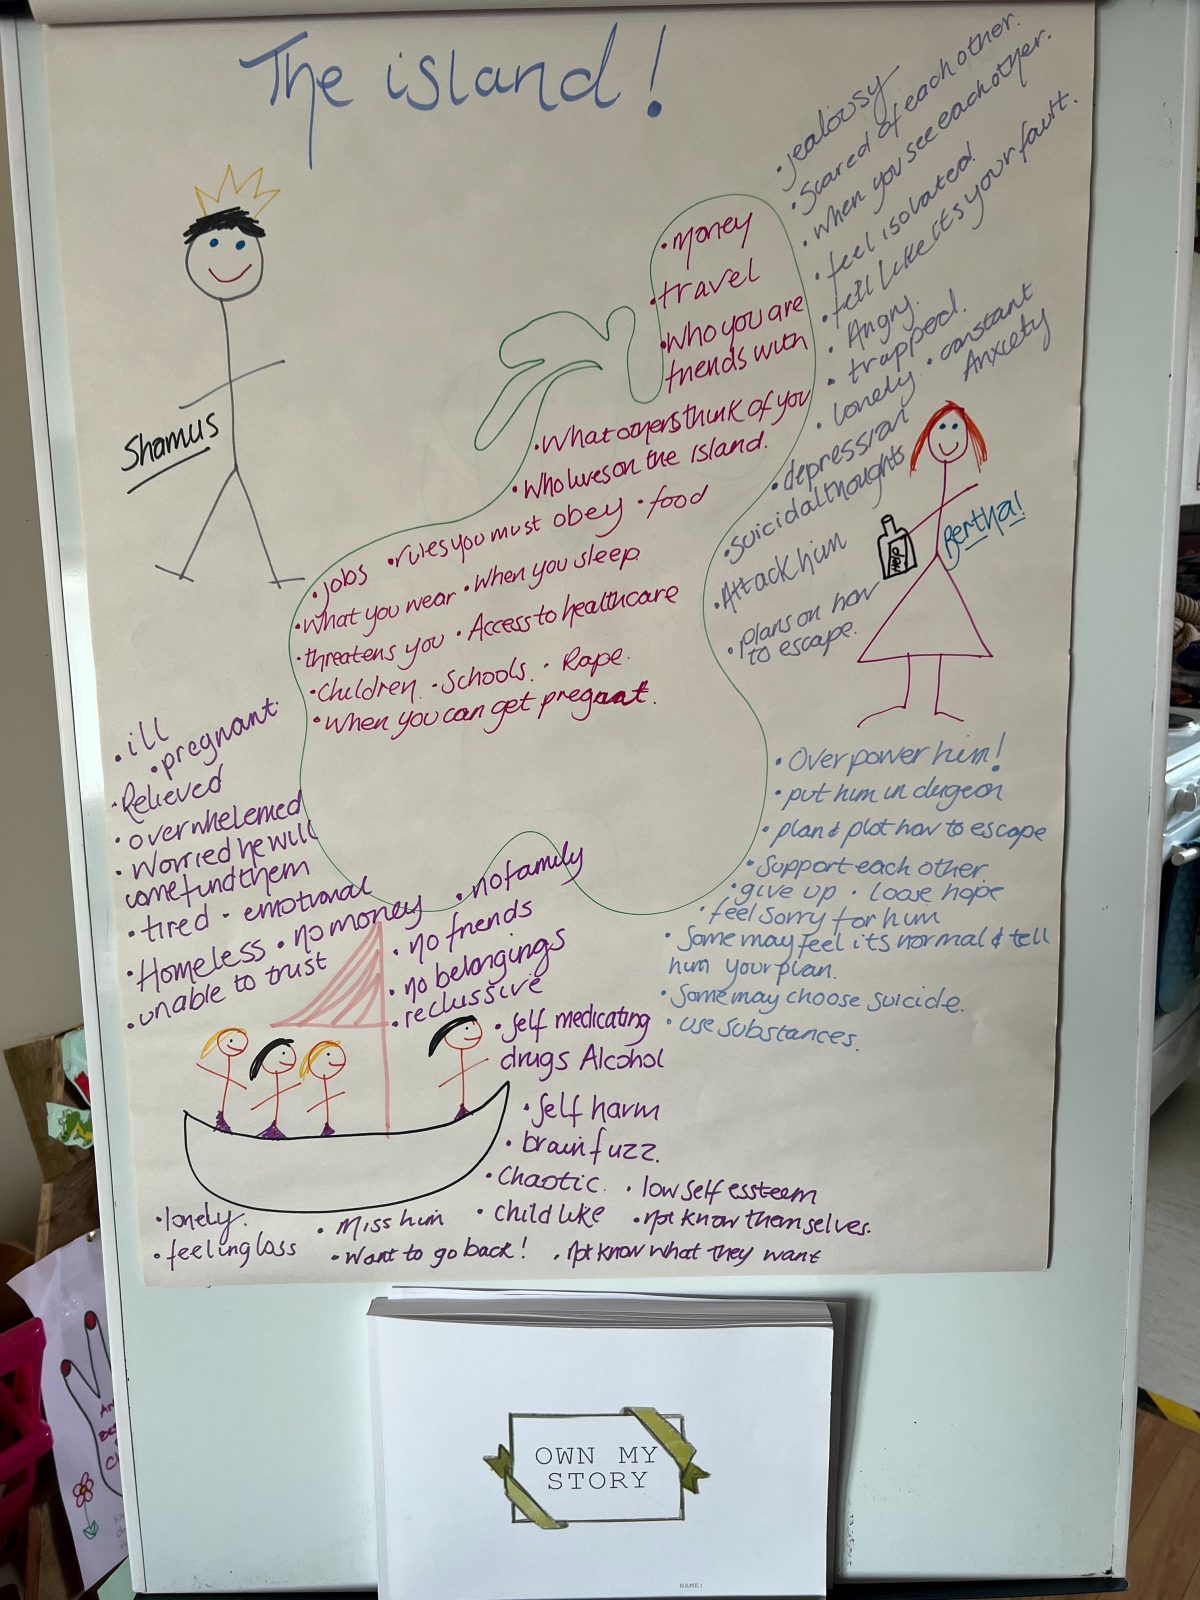 The island!
Shamus
• Money
• travel
• Who you are
friends with
• What others think of you
• Who lives on the island.
• rules you must obey • food
• jobs
• What you wear • When you sleep
• threatens you • Access to healthcare
• Children • Schools. • Rape.
• When you can get pregnant.
• jealousy
• Scared of each other.
• When you see each other.
• feel isolated.
• fell like its your fault.
• Angry.
• trapped.
• lonely • constant
Anxiety
• depression
• Suicidal thoughts
• Attack him
• plans on how
to escape.
Bertha!
• Overpower him!
• put him in dugeon
• plan & plot how to escape
• Support each other.
• give up • loose hope
• feel sorry for him
• Some may feel its normal & tell
him your plan.
• Some may choose suicide.
• use substances.
• ill
• pregnant.
• Relieved
• overwhelemed
• Worried he will
come fund them
• tired • emotional
• Homeless • no money
• unable to trust
• no family
• no friends
• no belongings
• reclussive
• Self medicating
drugs Alcohol
• Self harm
• brain fuzz.
• Chaotic. • low self essteem
• lonely. • Miss him • Child like • Not know themselves.
• feeling loss • Want to go back! • Not know what they want
OWN MY
STORY
NAME: